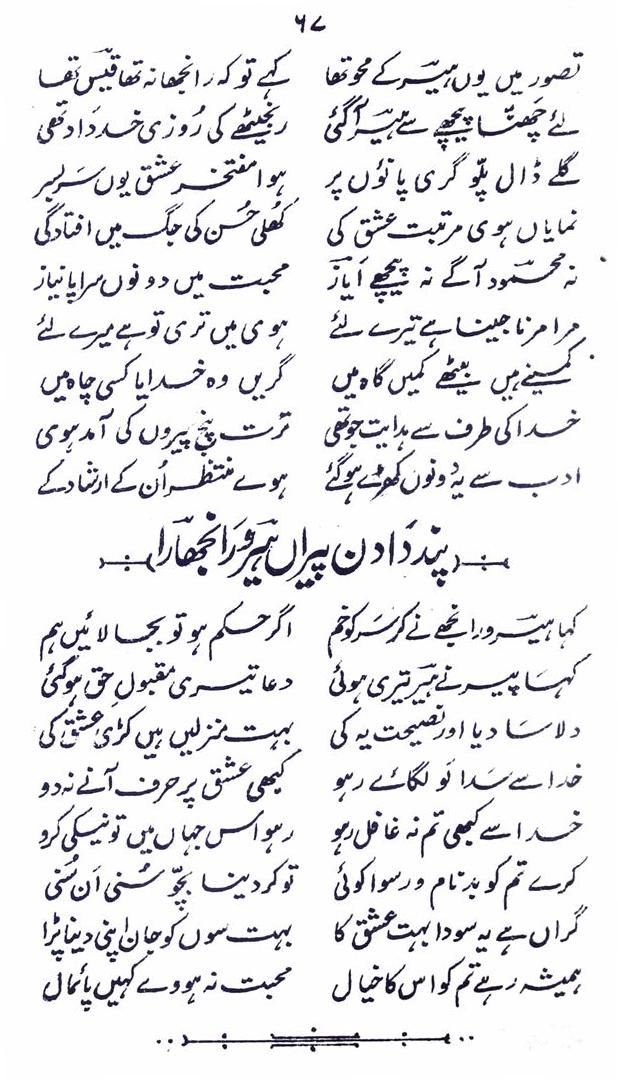 ۶۷
تصور میں یوں ہیر کے محو تھا کہے تو کہ رانجھا نہ تھا قیس تھا
لئے چھنا پیچھے سے ہیر آگئی رنجیٹھے کی روزی خدداد تھی
گلے ڈال پلّو گری پانؤں پر ہوا مفتخر عشق یوں سَربسر
نمایاں ہوی مرتبت عشق کی کھُلی حُسن کی جگ میں افتادگی
نہ محمود آگے نہ پیچھے ایاز محبت میں دونوں سراپا نیاز
مرا مرنا جینا ہے تیرے لئے ہوی میں تری تو ہے میرے لئے
کمینے ہیں بیٹھے کمیں گاہ میں گریں وہ خدایا کسی چاہ میں
خدا کی طرف سے ہدایت جو تھی ترت پنج پیروں کی آمد ہوی
ادب سے یہ دُونوں کھڑے ہوگئے ہوے منتظر اُن کے ارشاد کے
پند دَادن پیراں ہیر و رَانجھا را
کہا ہیر و رانجھے نے کر سَر کو خم اگر حکم ہو تو بجا لائیں ہم
کہا پیر نے ہیر تیری ہوئی دعا تیری مقبولِ حق ہوگئی
دلاسا دیا اور نصیحت یہ کی بہت منزلیں ہیں کڑی عشق کی
خدا سے سَدا لَو لگائے رہو کبھی عشق پر حرف آنے نہ دو
خدا سے کبھی تم نہ غافل رہو رہو اس جہاں میں تو نیکی کرو
کرے تم کو بدنام و رسوا کوئی تو کر دینا بچّو سُنی اَن سُنی
گراں ہے یہ سودا بہت عشق کا بہت سوں کو جان اپنی دینا پڑا
ہمیشہ رہے تم کو اس کا خیال محبت نہ ہووے کہیں پائمال